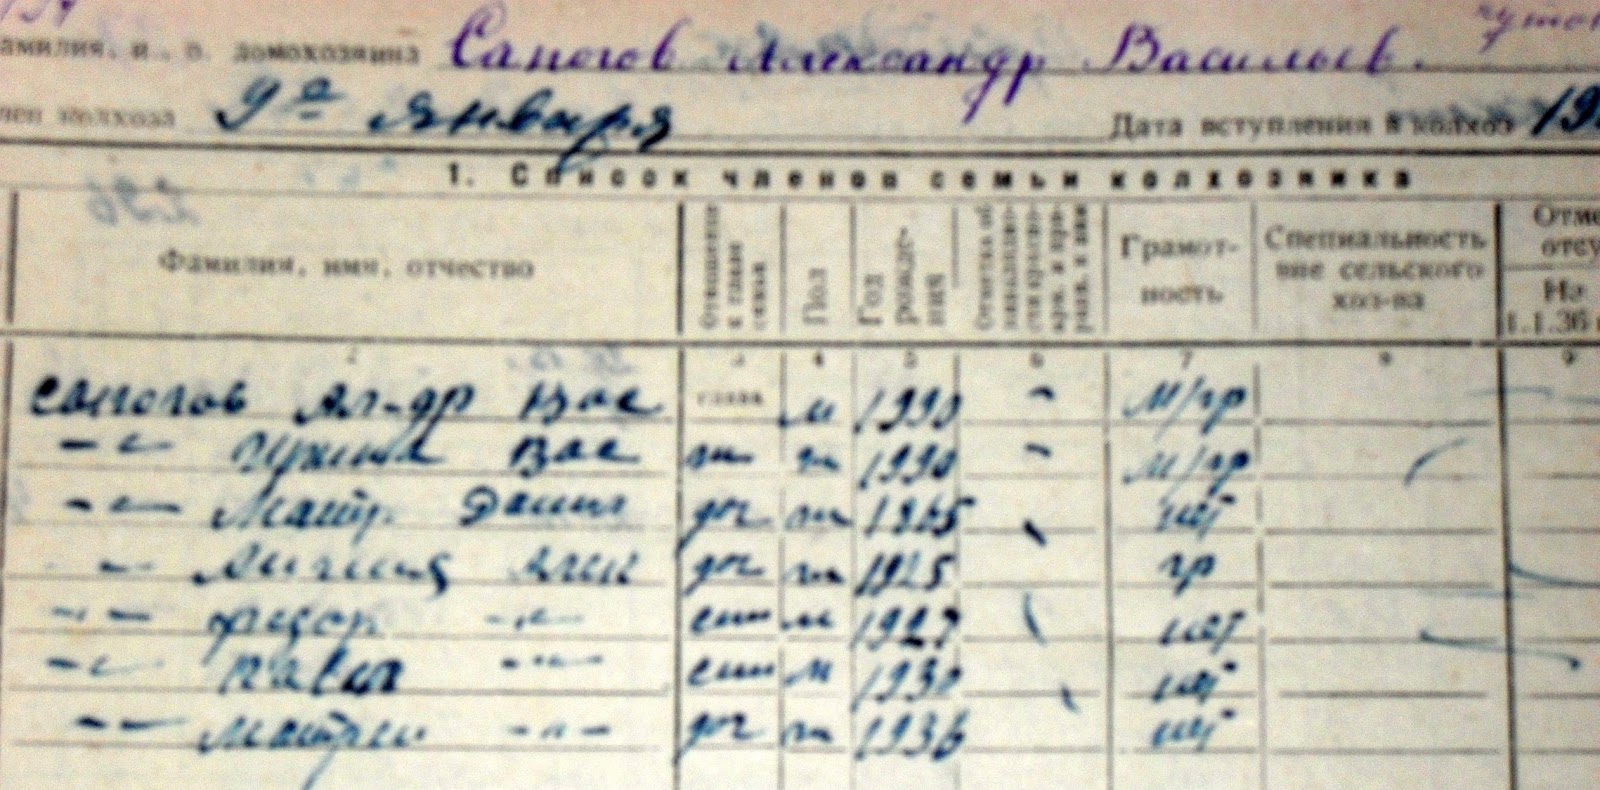 амилия, и., о. домохозяина Сапогов Александр Васильев.
лен колхоза 9ое января Дата вступления в колхоз 19
1. Список членов семьи колхозника
Фамилия, имя, отчество Отношение к главе семьи Пол Год рождения Грамот-ность Специальность вне сельского хоз-ва Отме отсу На 1.1.36
2 3 4 5 6 7 8 9
Сапогов Ал-др Вас глава м М/гр
-"- Вас ж ж М/гр
-"- Матр. Данил доч ж нет
-"- Алек доч ж 1925 гр
-"- Федор -"- сын м 1927 нет
-"- Павел -"- сын м нет
-"- Матрен -"- доч ж 1936 нет